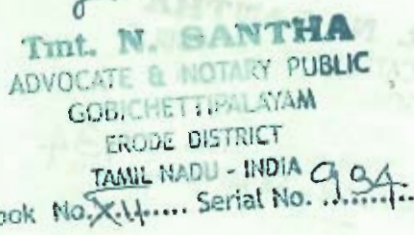 Tmt. N. SANTHA
ADVOCATE & NOTARY PUBLIC
GOBICHETTIPALAYAM
ERODE DISTRICT
TAMIL NADU - INDIA
ook No. ..... Serial No. 984